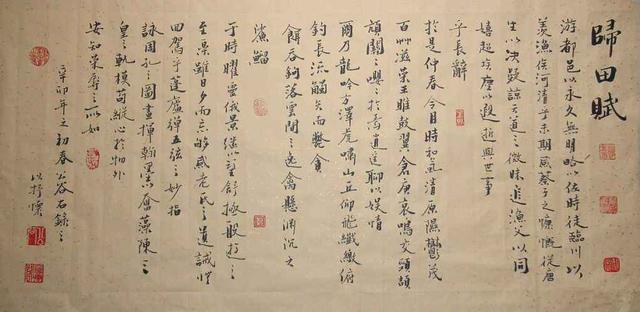 歸田賦
游都邑以永久無明略以佐時徒臨川以
羨漁俟河清乎未期感蔡子之慷慨從唐
生以決疑諒天道之微昧追漁父以同
嬉超埃塵以遐逝與世事
乎長辭
於是仲春令月時和氣清原隰鬱茂
百艸滋榮王雎鼓翼倉庚哀鳴交頸頡
頏關關嚶嚶於焉逍遙聊以娛情
爾乃龍吟方澤虎嘯山丘仰飛纖繳俯
釣長流觸矢而斃貪
餌吞鉤落雲間之逸禽懸淵沉之
鯊鰡
于時曜靈俄景繼以望舒極般遊之
至樂雖日夕而忘劬感老氏之遺誡將
迴駕乎蓬廬彈五弦之妙指
詠周孔之圖書揮翰墨以奮藻陳三
皇之軌模苟縱心於物外
安知榮辱之所如
辛卯年之初春公谷石錄之
以抒懷